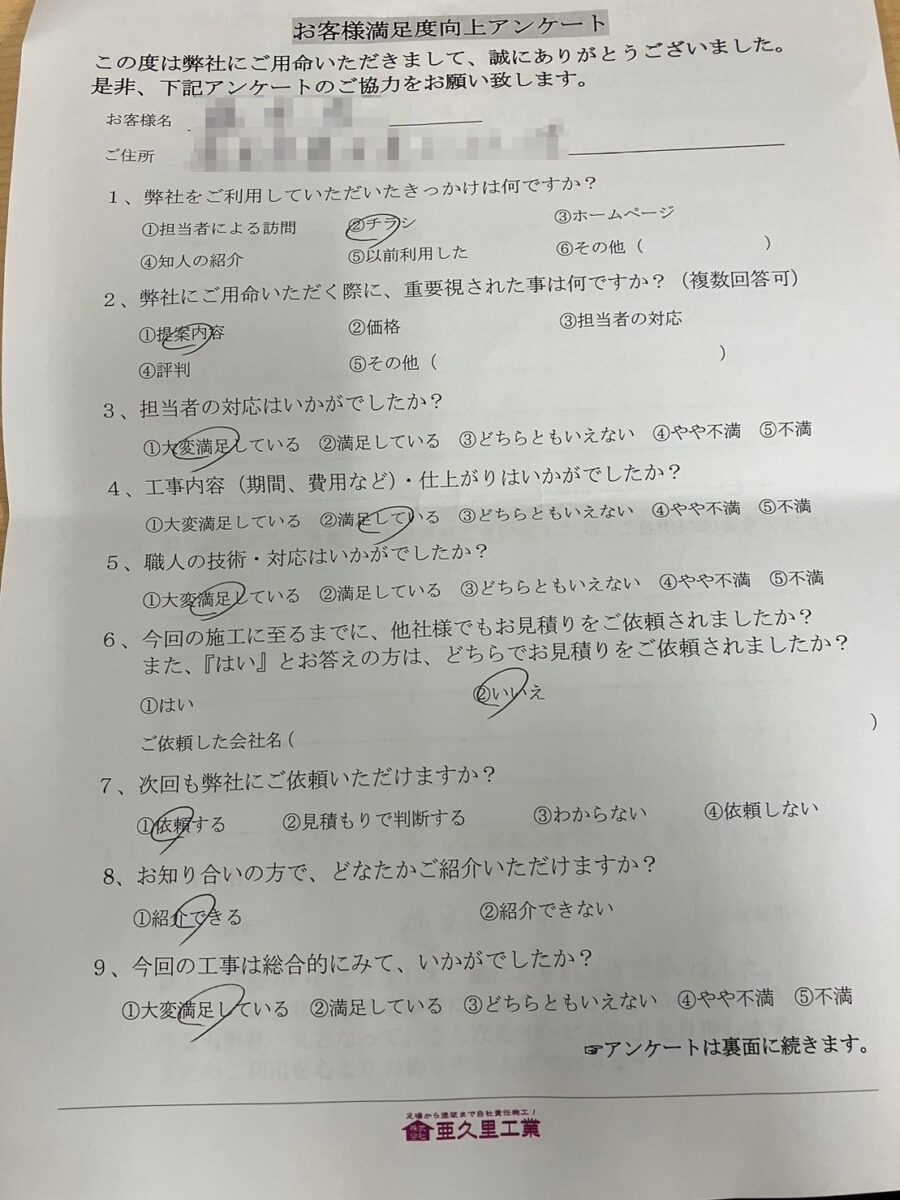 お客様満足度向上アンケート
この度は弊社にご用命いただきまして、誠にありがとうございました。
是非、下記アンケートのご協力をお願い致します。
お客様名
ご住所
1、弊社をご利用していただいたきっかけは何ですか？
①担当者による訪問 ②チラシ ③ホームページ
④知人の紹介 ⑤以前利用した ⑥その他（ ）
2、弊社にご用命いただく際に、重要視された事は何ですか？（複数回答可）
①提案内容 ②価格 ③担当者の対応
④評判 ⑤その他（ ）
3、担当者の対応はいかがでしたか？
①大変満足している ②満足している ③どちらともいえない ④やや不満 ⑤不満
4、工事内容（期間、費用など）・仕上がりはいかがでしたか？
①大変満足している ②満足している ③どちらともいえない ④やや不満 ⑤不満
5、職人の技術・対応はいかがでしたか？
①大変満足している ②満足している ③どちらともいえない ④やや不満 ⑤不満
6、今回の施工に至るまでに、他社様でもお見積りをご依頼されましたか？
また、『はい』とお答えの方は、どちらでお見積りをご依頼されましたか？
①はい ②いいえ
ご依頼した会社名（ ）
7、次回も弊社にご依頼いただけますか？
①依頼する ②見積もりで判断する ③わからない ④依頼しない
8、お知り合いの方で、どなたかご紹介いただけますか？
①紹介できる ②紹介できない
9、今回の工事は総合的にみて、いかがでしたか？
①大変満足している ②満足している ③どちらともいえない ④やや不満 ⑤不満
☞アンケートは裏面に続きます。
足場から塗装まで自社責任施工！
株式会社 亜久里工業